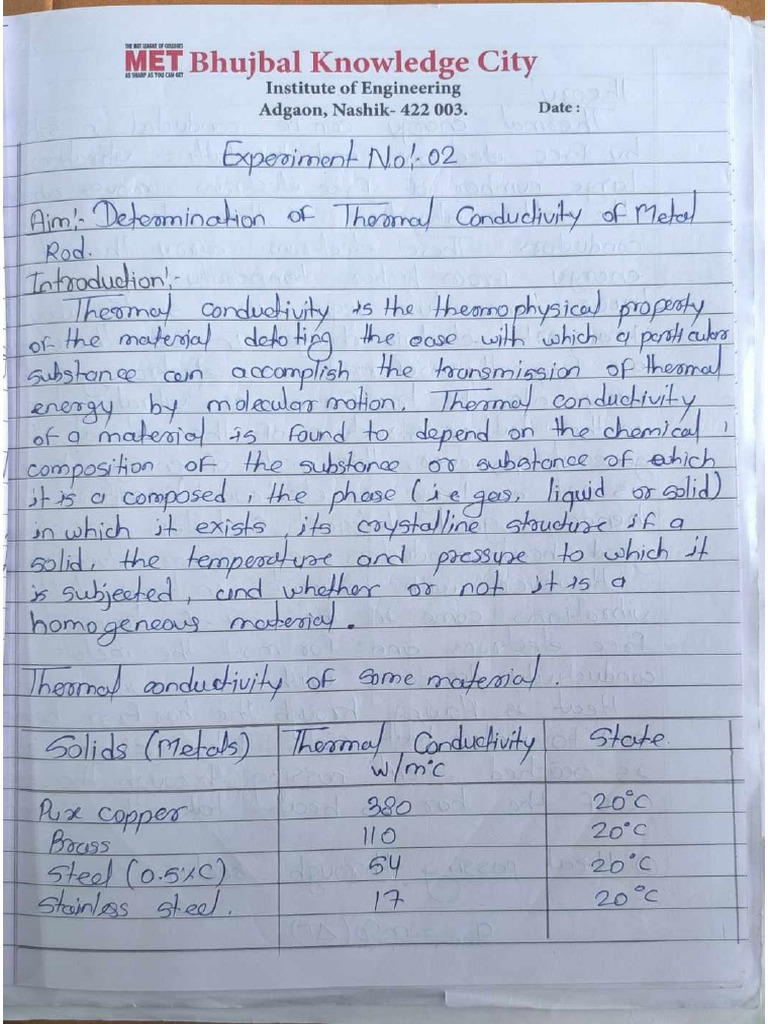 THE MET LEAGUE OF COLLEGES
MET Bhujbal Knowledge City
AS SHARP AS YOU CAN GET
Institute of Engineering
Adgaon, Nashik- 422 003.
Date :
Experiment No:- 02
Aim:- Determination of Thermal Conductivity of Metal
Rod.
Introduction:-
Thermal conductivity is the thermophysical property
of the material detoting the ease with which a particular
substance can accomplish the transmission of thermal
energy by molecular motion. Thermal conductivity
of a material is found to depend on the chemical
composition of the substance or substance of which
it is a composed, the phase (i.e gas, liquid or solid)
in which it exists, its crystalline structure if a
solid, the temperature and pressure to which it
is subjected, and whether or not it is a
homogeneous material.
Thermal conductivity of some material.
Solids (Metals) Thermal Conductivity State
W/m°C
copper 380 20°C
Brass 110 20°C
Steel (0.5%C) 54 20°C
Stainless steel. 17 20°C